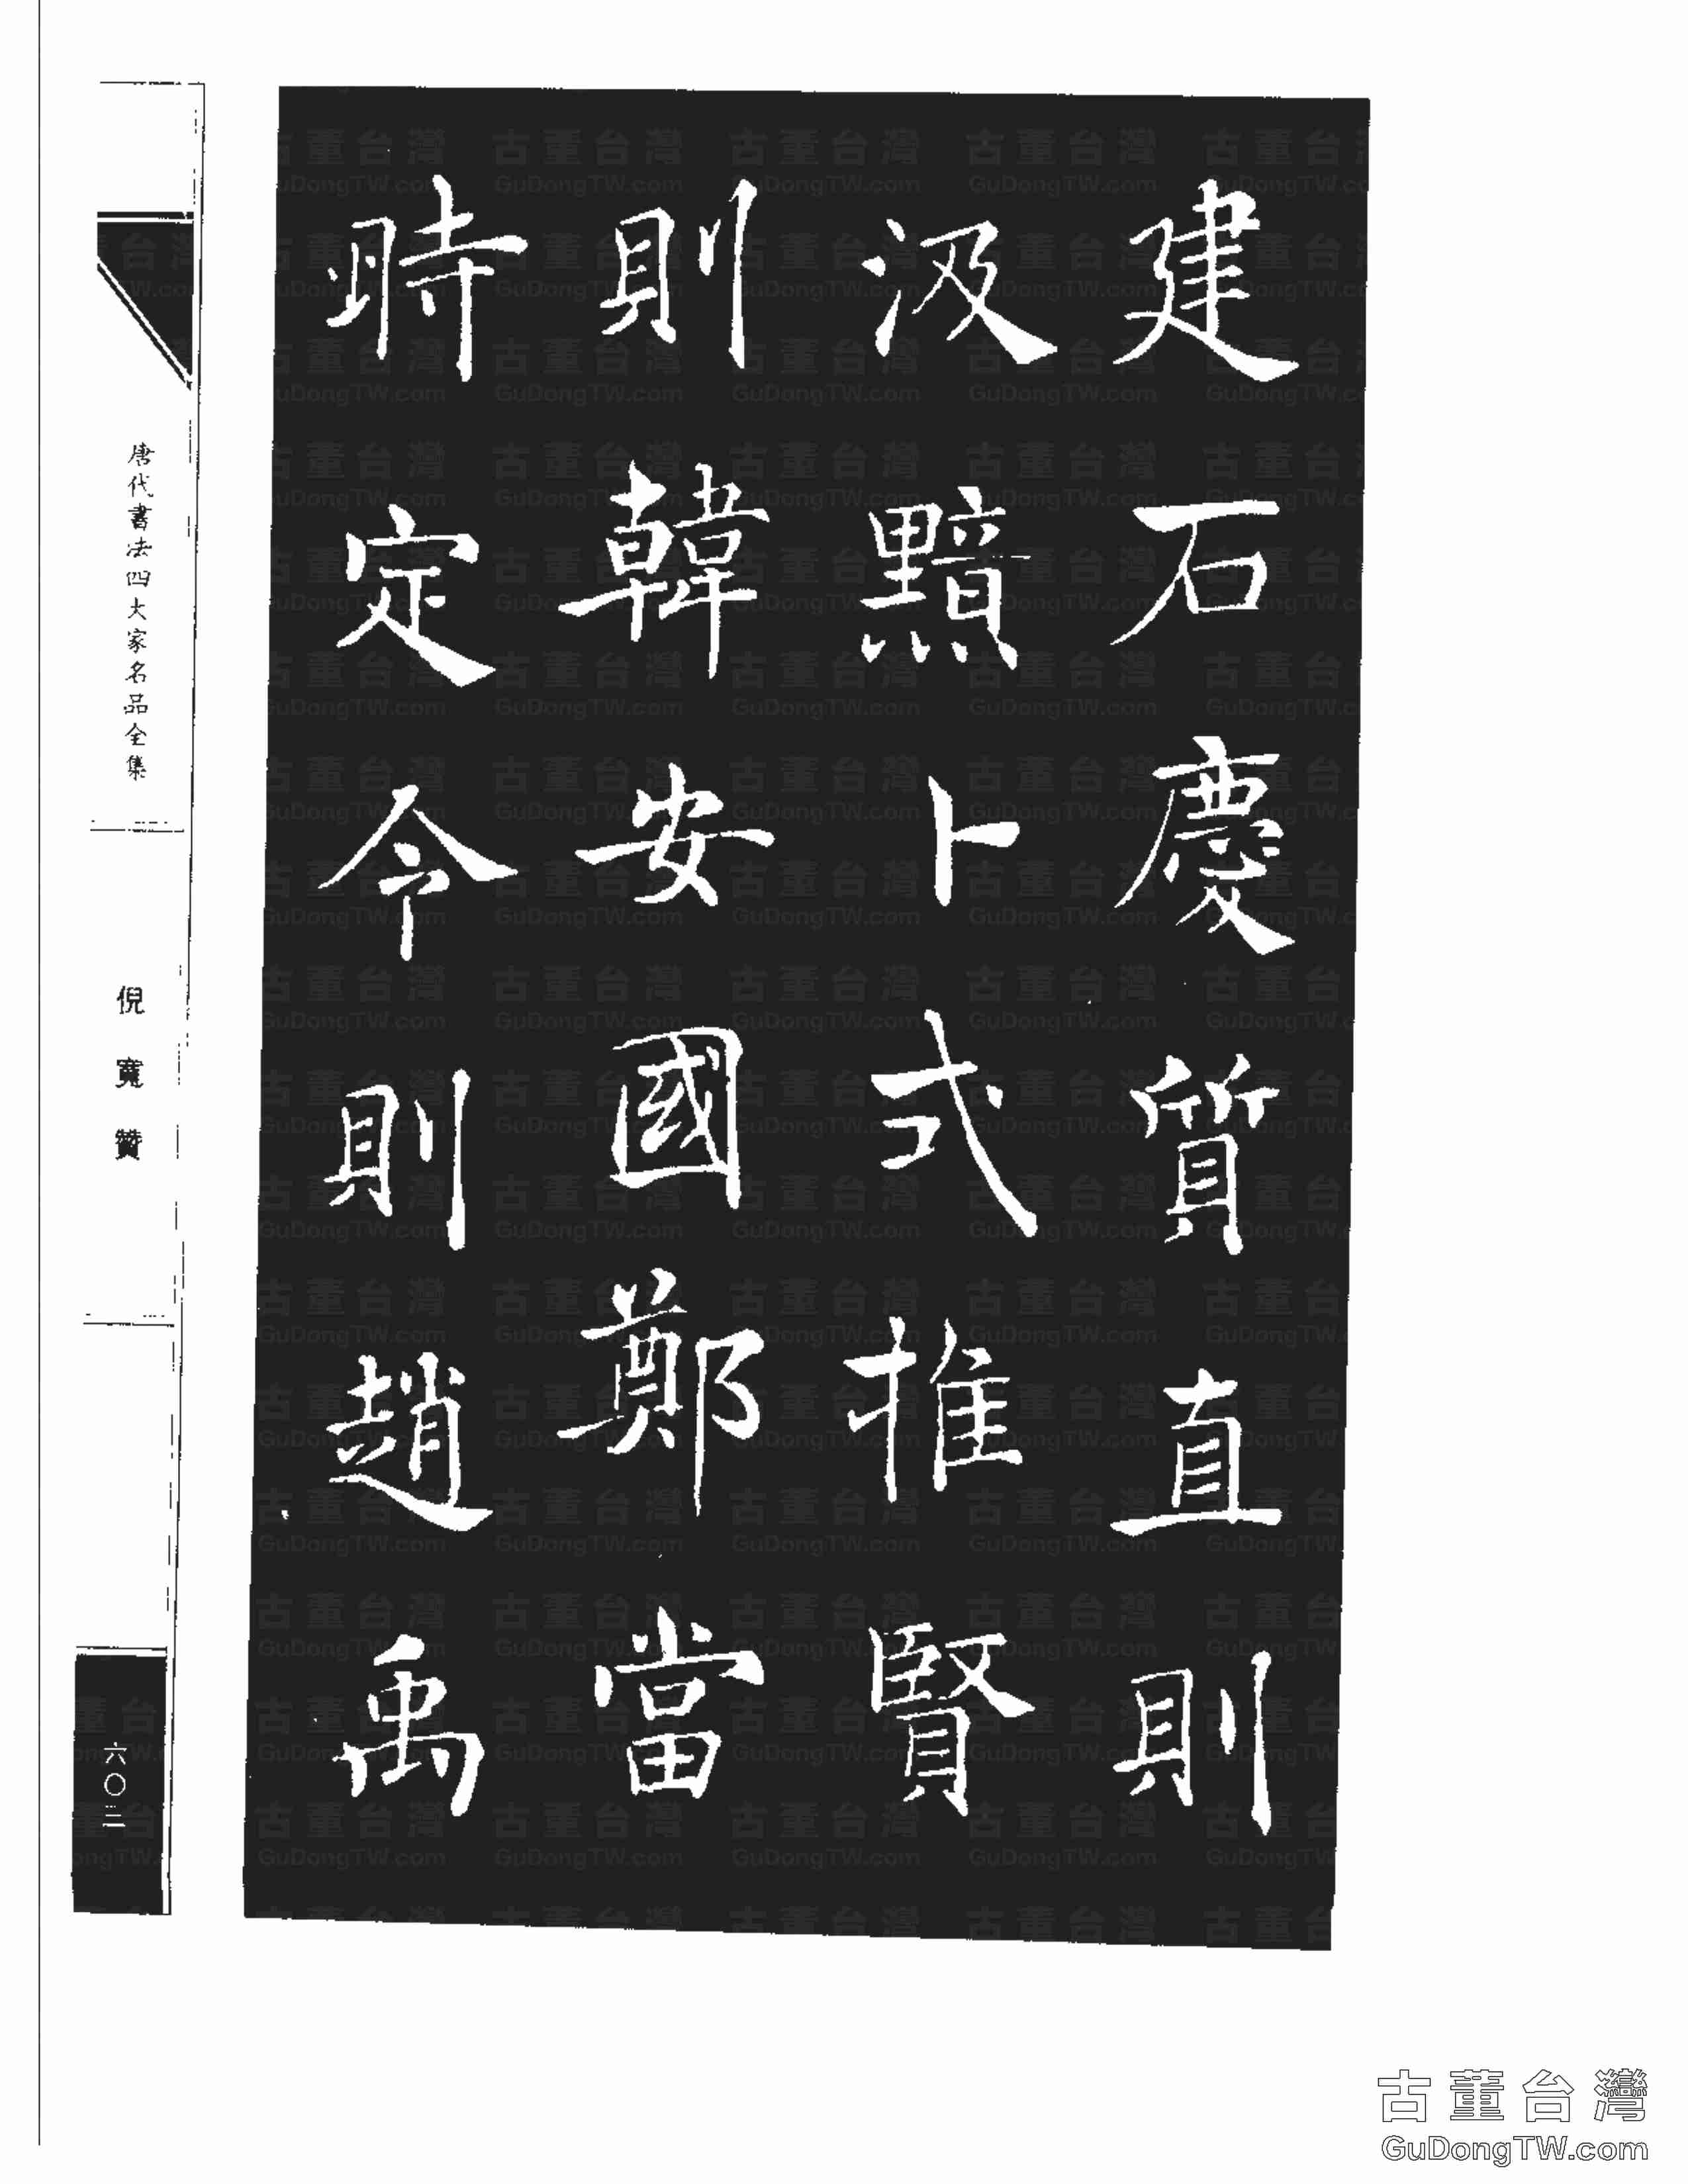 建石慶質直則
汲黯卜式推賢
則韓安國鄭當
時定令則趙禹
唐代書法四大家名品全集
倪寬贊
六〇三
古董台灣
GuDongTW.com